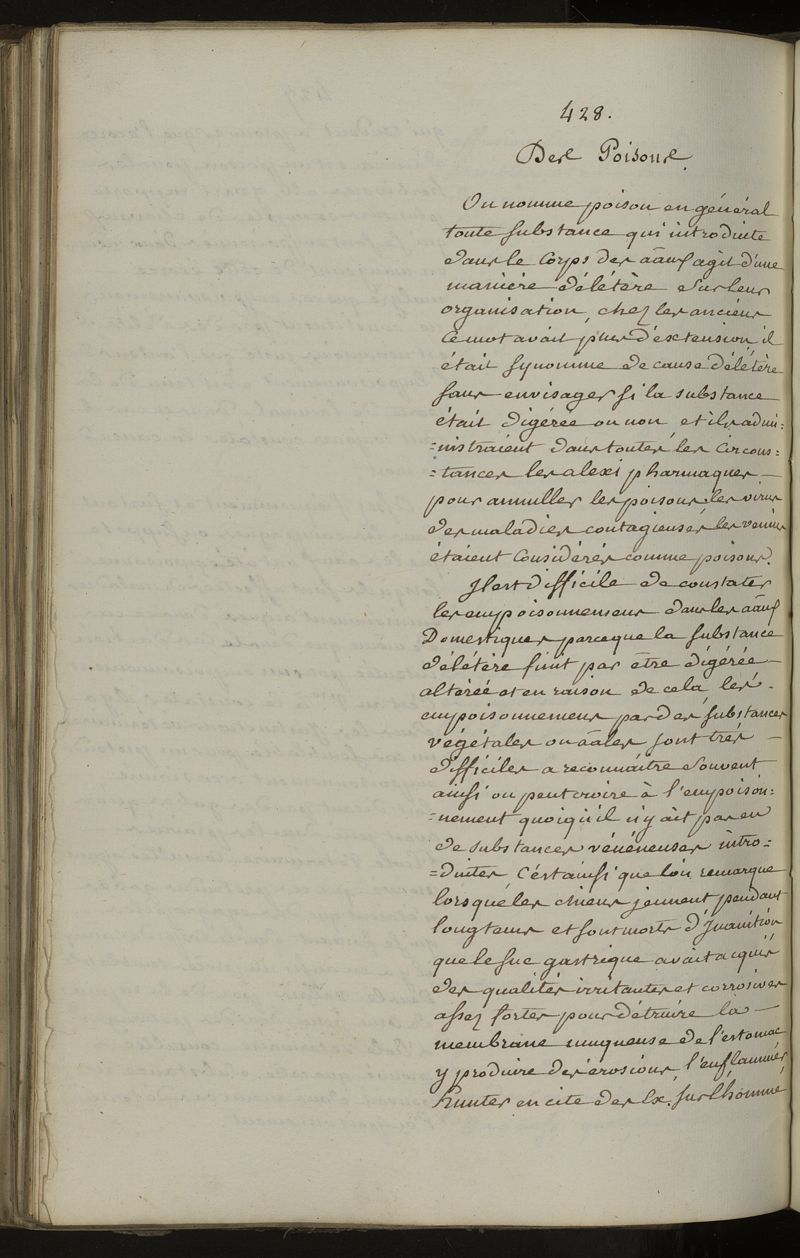 428.
Des Poisons.
On nomme poison en général
toute substance qui introduite
dans le Corps des aãux agit d'une
manière délétère sur leur
organisation, chez les anciens
Ce mot avait plus d'extension il
était synonime de cause délétère
sans envisager si la substance
était digérée ou non, et ils admi:
=nistraient dans toutes les circons:
=tances les alexi pharmaques —
pour annuller les poisons, les virus
des maladies contagieuses les venins
étaient Considérés comme poisons.
Il est difficile de constater
les empoisonnemens dans les aãux
Domestiques parceque la substance
délétère finit par être digérée —
altérée et en raison de cela, les
empoisonnemens par des substances
végétales ou aãles sont très —
difficiles a reconnaitre souvent
ainsi on peut croire à l'empoison:
=nement quoiqu'il n'y ait pas eu
de substances vénéneuses intro:
=duites C'est ainsi que l'on remarque
lorsque les chiens jeunent pendant
longtems et sont morts d'Inanition
que le suc gastrique avait acquis
des qualités irritantes et corrosives
assez fortes pour détruire la —
membrane muqueuse de l'estomac
y produire des érosions, l'enflammer,
hunter en cite des Ex. sur l'homme